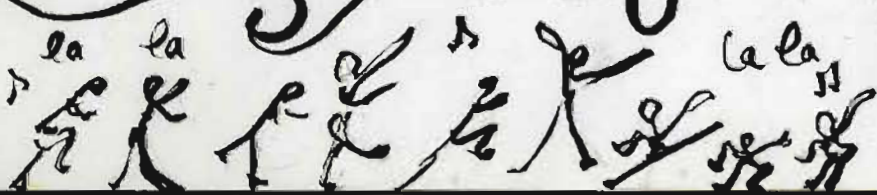 la la
la la